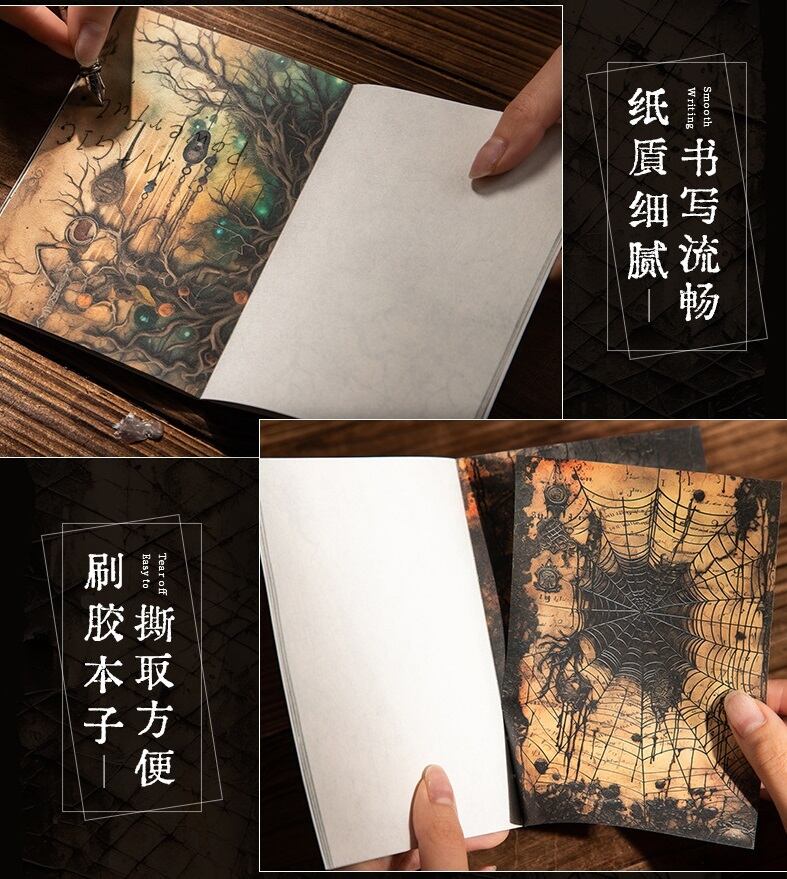 纸质细腻
书写流畅
Smooth
Writing
MAGIC
powerful
刷胶本子
撕取方便
Tear off
Easy to